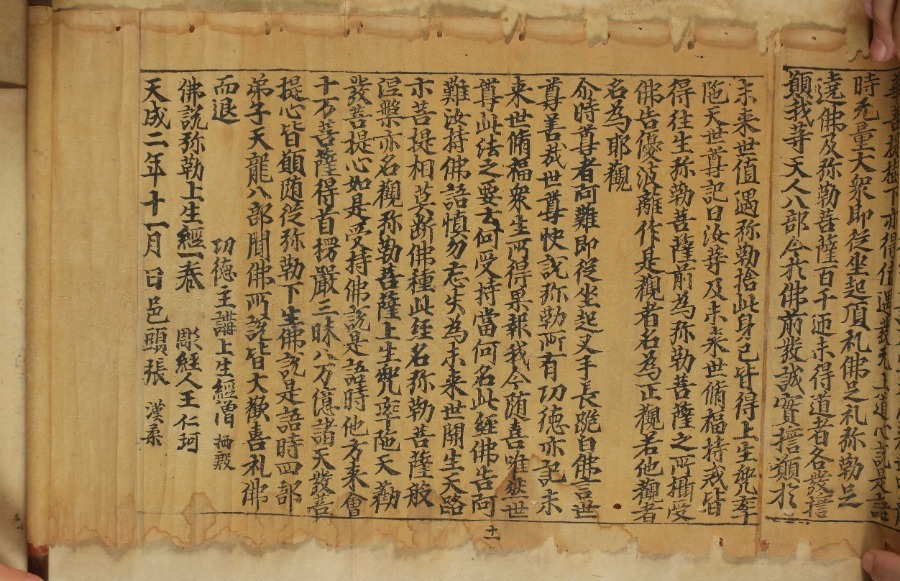 時无量大衆即從坐起頂礼佛足礼弥勒足
遶佛及弥勒菩薩百千迊未得道者各發誓
願我等天人八部今於佛前發誠實擔願於
未来世值遇弥勒捨此身已皆得上生兜率
陁天世尊記曰汝等及未来世俻福持戒皆
得往生弥勒菩薩前為弥勒菩薩之所攝受
佛告優波離作是觀者名為正觀若他觀者
名為耶觀
尒時尊者阿難即從坐起叉手長跪白佛言世
尊善㦲世尊快說弥勒所有功德亦記未
来世俻福衆生所得果報我今随喜唯然世
尊此法之要云何受持當何名此經佛告阿
難汝持佛語慎勿忘失為未来世開生天路
示菩提相莫断佛種此經名弥勒菩薩般
涅槃亦名觀弥勒菩薩上生兜率陁天勸
發菩提心如是受持佛說是語時他方来會
十万菩薩得首楞嚴三昧八万億諸天發菩
提心皆願随從弥勒下生佛說是語時四部
弟子天龍八部聞佛所說皆大歡喜礼佛
而退 功德主講上生經僧栖殷
佛說弥勒上生經一卷 彫經人王仁珂
天成二年十一月 日邑頭張漢柔
十一